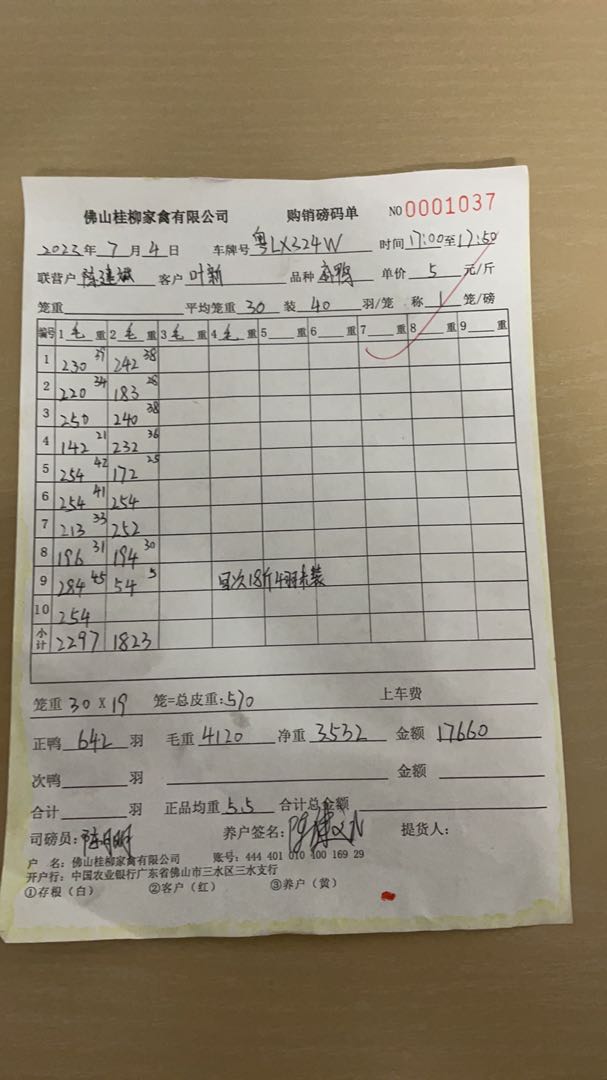 佛山桂柳家禽有限公司 购销磅码单 NO 0001037
2023年 7月 4日 车牌号 粤LX324W 时间 17:00至17:50
联营户 陈建斌 客户 叶新 品种 鸭 单价 5 元/斤
笼重 平均笼重 30 装 40 羽/笼 称 1 笼/磅
编号 1 毛 重 2 毛 重 3 毛 重 4 毛 重 5 重 6 重 7 重 8 重 9 重
1 230 39 242 38
2 220 34 183 28
3 250 240 38
4 142 21 232 36
5 254 42 172 25
6 254 41 254
7 213 33 252
8 196 31 194 30
9 284 45 54 5 次18斤4羽未装
10 254
小计 2297 1823
笼重 30 X 19 笼=总皮重: 570 上车费
正鸭 642 羽 毛重 4120 净重 3532 金额 17660
次鸭 羽 金额
合计 羽 正品均重 5.5 合计总金额
司磅员: 养户签名: 提货人:
户 名: 佛山桂柳家禽有限公司 账号: 444 401 010 400 169 29
开户行: 中国农业银行广东省佛山市三水区三水支行
①存根（白） ②客户（红） ③养户（黄）